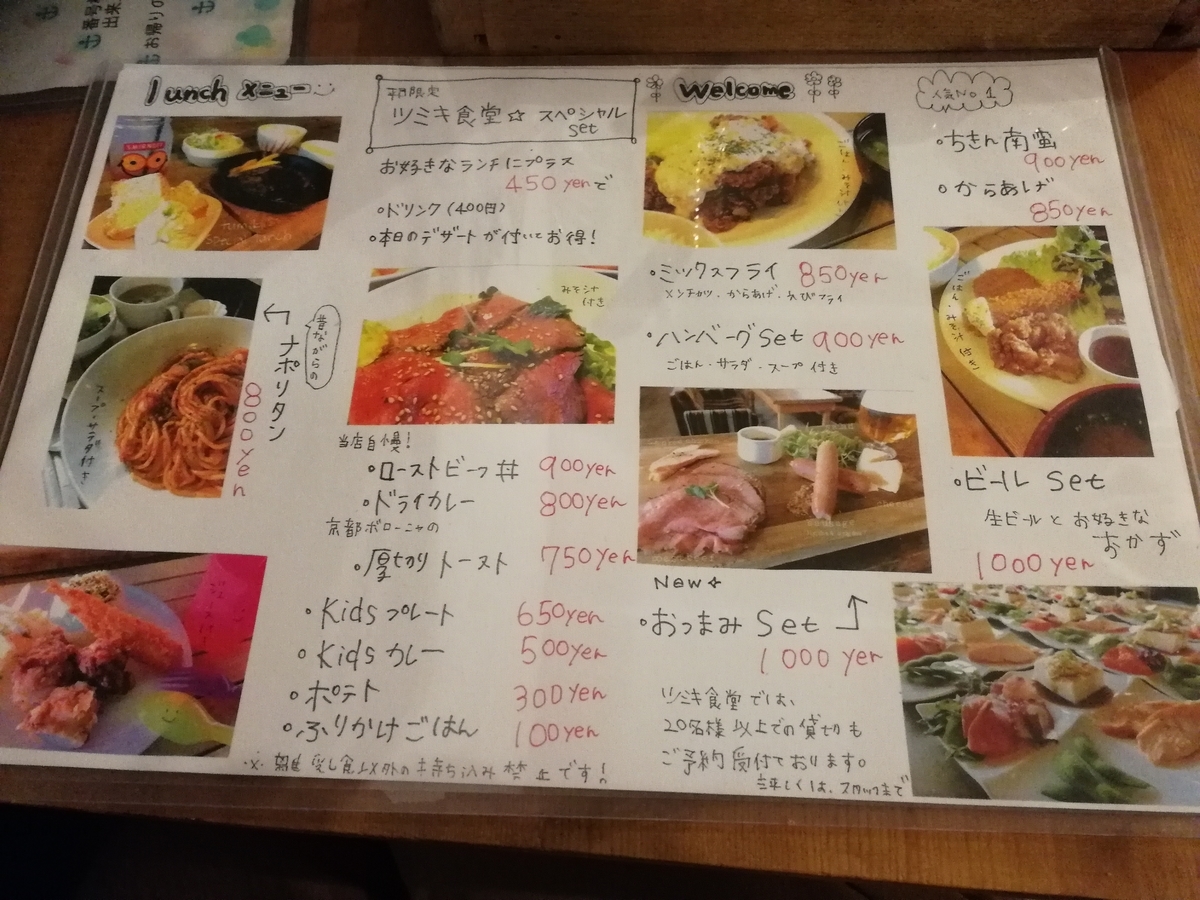 番号
出来
お帰りの
lunch メニュー
期限定
ツミキ食堂☆ スペシャル
set
お好きなランチにプラス
450yenで
・ドリンク(400円)
・本日のデザートが付いてお得!
Welcome
人気No.1
・ちきん南蛮
900yen
・からあげ
850yen
ごはん・みそ汁
・ミックスフライ 850yen
メンチカツ・からあげ・えびフライ
・ハンバーグSet 900yen
ごはん・サラダ・スープ付き
ごはん・みそ汁付き
昔ながらの
ナポリタン
800yen
スープ・サラダ付き
みそ汁
付き
当店自慢!
・ローストビーフ丼 900yen
・ドライカレー 800yen
京都ボローニャの
・厚切りトースト 750yen
・Kidsプレート 650yen
・Kidsカレー 500yen
・ポテト 300yen
・ふりかけごはん 100yen
食以外の持ち込み禁止です!
・ビールSet
生ビールとお好きな
おかず
1000yen
New
・おつまみSet
1000yen
ツミキ食堂では、
20名様以上での貸切も
ご予約受付ております。
詳しくは、スタッフまで